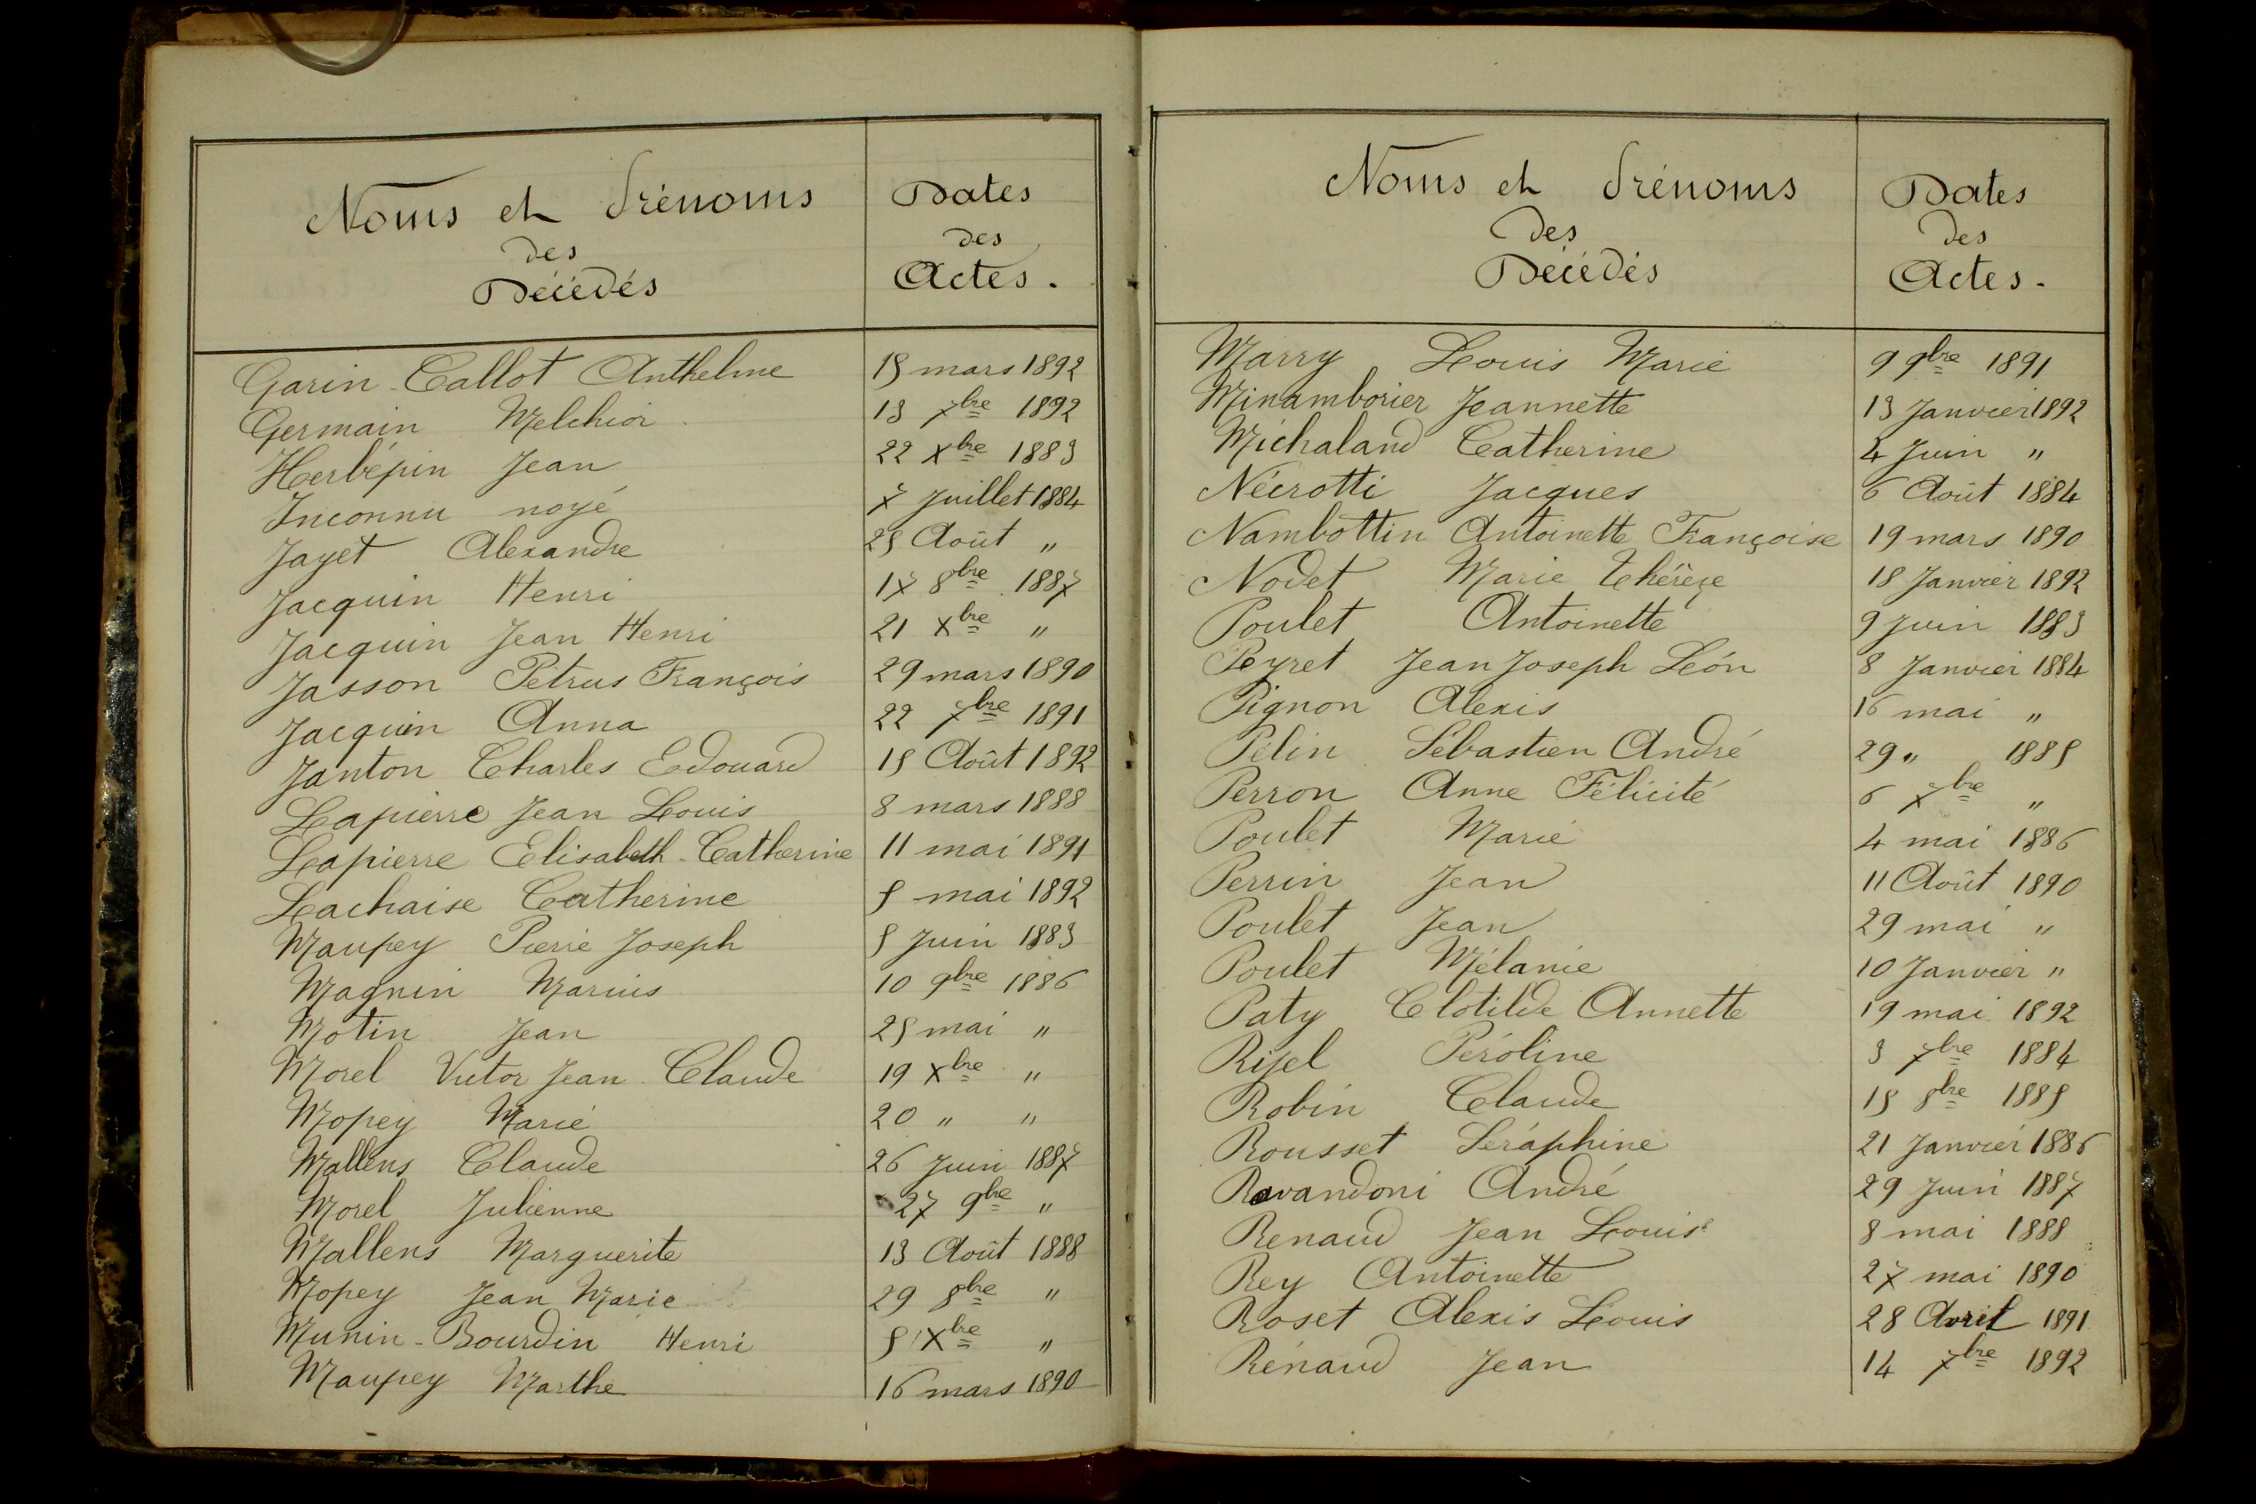 Noms et Prénoms
des
Décédés
Dates
des
Actes.
Garin-Callot Anthelme 15 mars 1892
Germain Melchior 13 7bre 1892
Herbépin Jean 22 Xbre 1883
Inconnu noyé 7 Juillet 1884
Jayet Alexandre 25 Août "
Jacquin Henri 17 8bre 1887
Jacquin Jean Henri 21 Xbre "
Jasson Pétrus François 29 mars 1890
Jacquin Anna 22 7bre 1891
Janton Charles Edouard 15 Août 1892
Lapierre Jean Louis 8 mars 1888
Lapierre Elisabeth-Catherine 11 mai 1891
Lachaise Catherine 5 mai 1892
Maupey Pierre Joseph 5 Juin 1883
Magnin Marius 10 9bre 1886
Motin Jean 25 mai "
Morel Victor Jean Claude 19 Xbre "
Mopey Marie 20 " "
Mallens Claude 26 Juin 1887
Morel Julienne 27 9bre "
Mallens Marguerite 13 Août 1888
Mopey Jean Marie 29 8bre "
Munin-Bourdin Henri 5 Xbre "
Maupey Marthe 16 mars 1890
Noms et Prénoms
des
Décédés
Dates
des
Actes.
Marry Louis Marie 9 9bre 1891
Minamborier Jeannette 13 Janvier 1892
Michaland Catherine 4 Juin "
Nécrotti Jacques 6 Août 1884
Nambottin Antoinette Françoise 19 mars 1890
Nodet Marie Thérèse 18 Janvier 1892
Poulet Antoinette 9 Juin 1883
Peyret Jean Joseph Léon 8 Janvier 1884
Pignon Alexis 16 mai "
Pélin Sébastien André 29 " 1885
Perron Anne Félicité 6 7bre "
Poulet Marie 4 mai 1886
Perrin Jean 11 Août 1890
Poulet Jean 29 mai "
Poulet Mélanie 10 Janvier "
Paty Clotilde Annette 19 mai 1892
Rijel Péroline 3 7bre 1884
Robin Claude 15 8bre 1885
Rousset Séraphine 21 Janvier 1886
Ravandoni André 29 Juin 1887
Renaud Jean Louis 8 mai 1888
Rey Antoinette 27 mai 1890
Roset Alexis Louis 28 Avril 1891
Rénaud Jean 14 7bre 1892